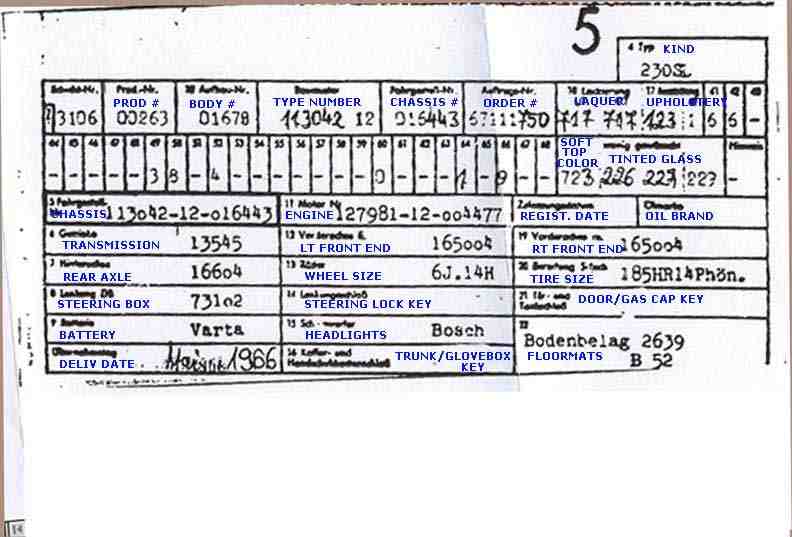 5
4 Typ KIND
230SL
Schein-Nr. Prod.-Nr. Aufbau-Nr. Baumuster Fahrgestell-Nr. Auftrags-Nr. 16 Lackierung 17 41 42 43
PROD # BODY # TYPE NUMBER CHASSIS # ORDER # LAQUER UPHOLSTERY
3106 00263 01678 113042 12 016443 67111750 717 717 123 1 6 6 -
44 45 46 47 48 49 50 51 52 53 54 55 56 57 58 59 60 61 62 63 64 65 66 67 68
SOFT TOP COLOR TINTED GLASS
- - - - - 3 8 - 4 - - - - - - - 0 - - - 1 - 9 - - 723 226 227 227 -
3 Fahrgestell CHASSIS 113042-12-016443 11 Motor Nr. ENGINE 127981-12-004477 REGIST. DATE OIL BRAND
6 Getriebe TRANSMISSION 13545 12 Vorderachse LT FRONT END 165004 19 Vorderachse RT FRONT END 165004
7 Hinterachse REAR AXLE 16604 13 Räder WHEEL SIZE 6J.14H 20 Bereifung TIRE SIZE 185HR14Phön.
8 Lenkung DB STEERING BOX 73102 14 Lenkungsschloß STEERING LOCK KEY 21 Tür- und Tankschloß DOOR/GAS CAP KEY
9 Batterie BATTERY Varta 15 HEADLIGHTS Bosch 22 Bodenbelag 2639
DELIV DATE 1966 16 Koffer- und Handschuhkastenschloß TRUNK/GLOVEBOX KEY FLOORMATS B 52
14